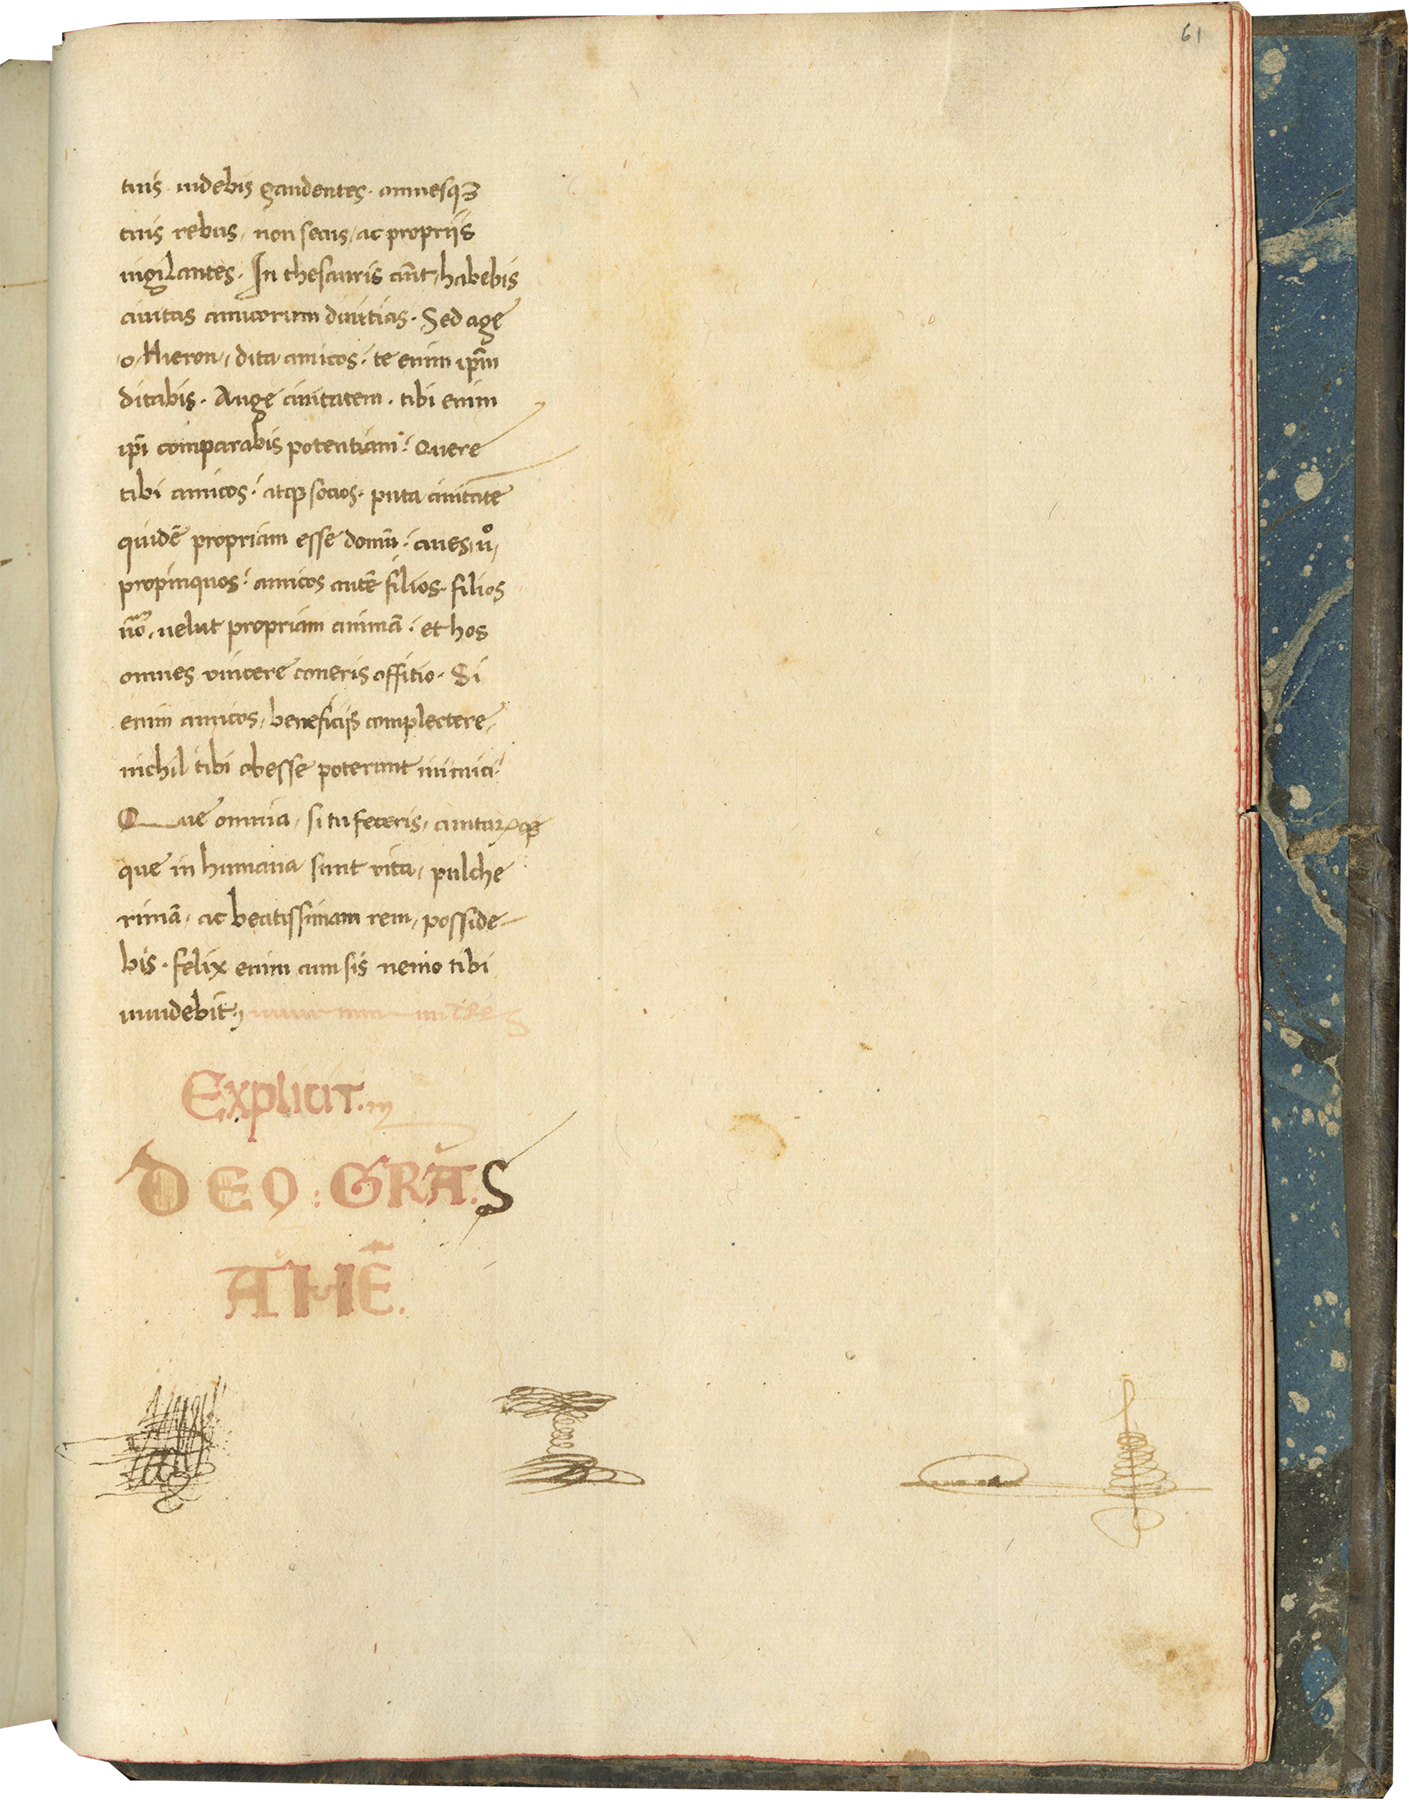 61
tuis uidebis gaudentes. omnesqȝ
tuis rebus, non secus, ac propriis
uigilantes. In thesauris aũt, habebis
cuntas amicorum diuitias. Sed age
o, Hieron, dita amicos: te enim ip̃m
ditabis. Auge ciuitatem. tibi enim
ip̃i comparabis potentiam: Quere
tibi amicos: atqꝫ socios. puta ciuitatẽ
quidẽ propriam esse domũ: ciues, u͛o,
propinquos: amicos autẽ filios. filios
u͛o, uelut propriam animã: et hos
omnes vincere coneris offitio. Si
enim amicos, beneficijs complectere,
nichil tibi obesse poterunt inimici:
Que omnia, si tu feceris, cuntaꝝqꝫ
que in humana sunt vita, pulche
rimã, ac beatissimam rem, posside-
bis. felix enim cum sis nemo tibi
inuidebit,
Explicit.
DEO: GRÃ.S
AMẼ.